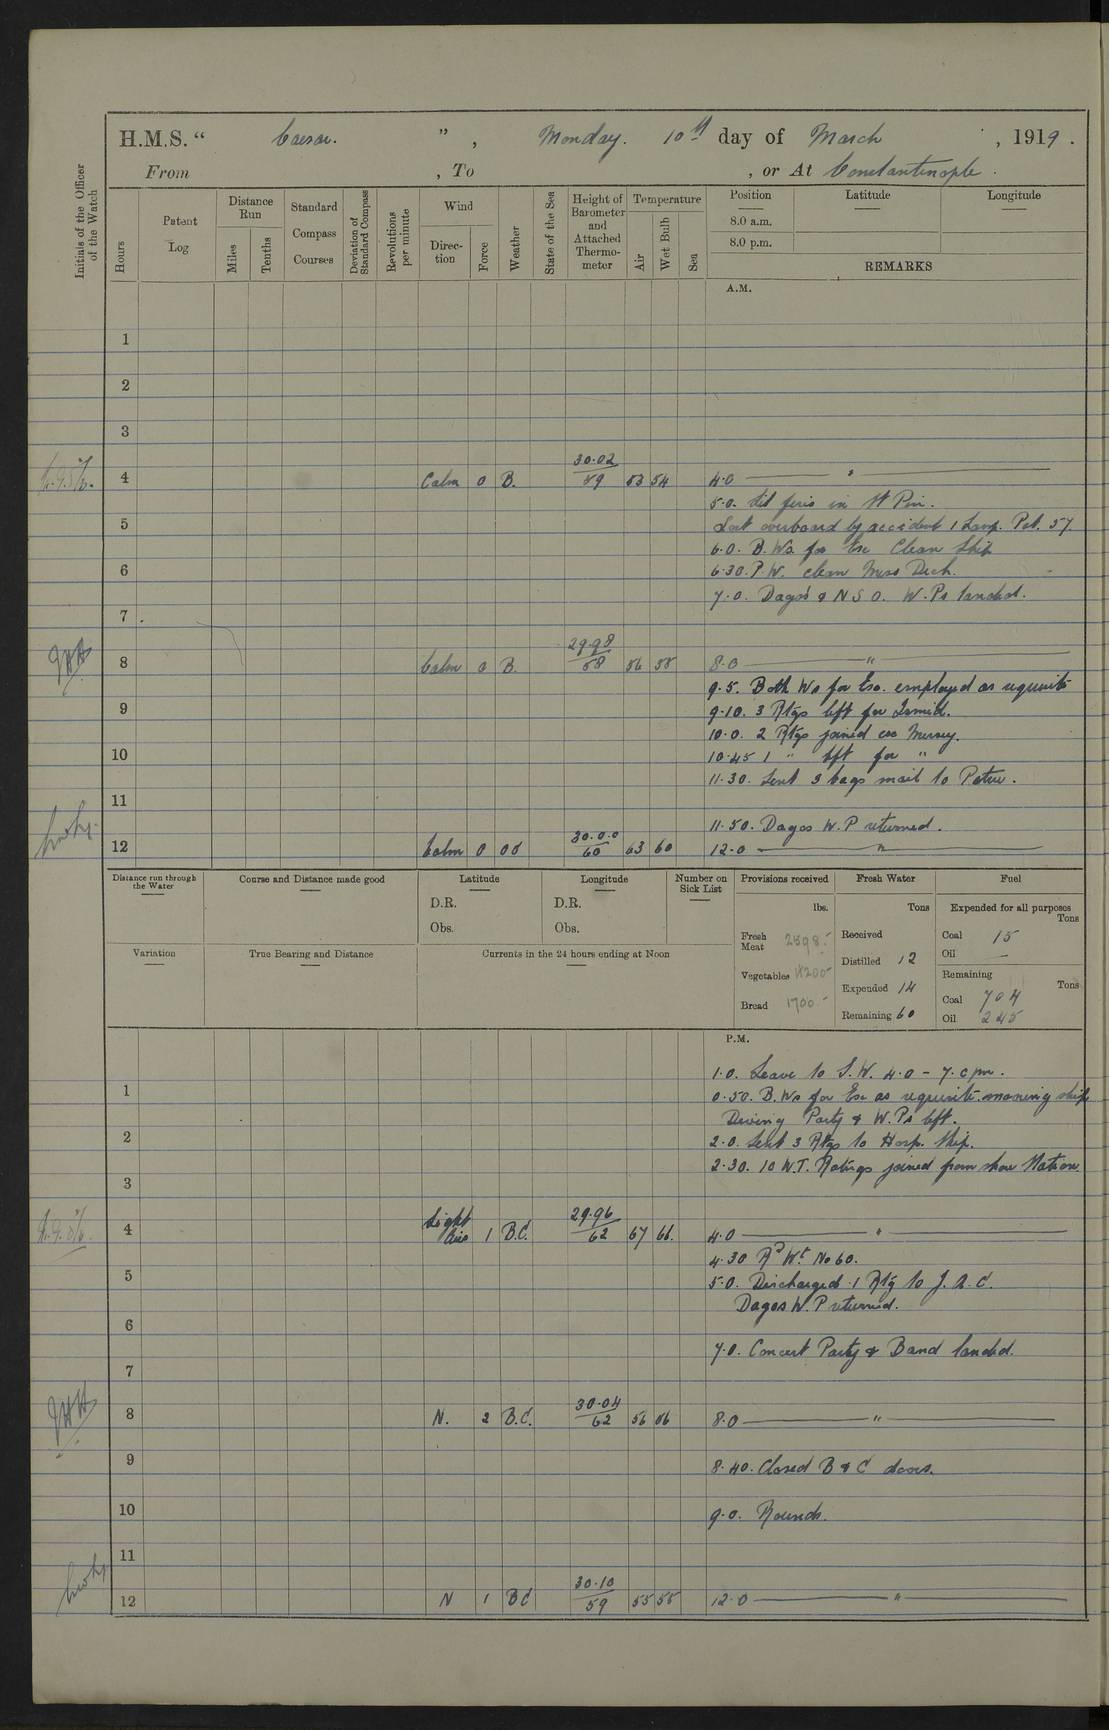 H.M.S. " Caesar. ", Monday. 10th day of March, 1919.
From , To , or At Constantinople.
Initials of the Officer of the Watch
Hours
Patent Log
Distance Run
Miles
Tenths
Standard Compass Courses
Deviation of Standard Compass
Revolutions per minute
Wind
Direc-tion
Force
Weather
State of the Sea
Height of Barometer and Attached Thermo-meter
Temperature
Air
Wet Bulb
Sea
Position
Latitude
Longitude
8.0 a.m.
8.0 p.m.
REMARKS
A.M.
1
2
3
4 Calm 0 B. 30.02 59 53 54 4.0 "
5.0. in
5 Lost overboard by accident 1 Lamp. Pat. 57.
6.0. B. Ws. for Ex Clean Ship
6 6.30. P.W. clean Mess Deck.
7.0. Dagos & N S O. W. Ps landed.
7
8 Calm 0 B. 29.98 58 56 55 8.0 "
9.5. Both Ws for Ex. employed as requisite
9 9.10. 3 Rtgs left for Ismid.
10.0. 2 Rtgs joined ex Mersey.
10 10.45 1 " left for "
11.30. Sent 3 bags mail to
11
11.50. Dagos W. P returned.
12 Calm 0 30.0.0 60 63 60 12.0 "
Distance run through the Water
Course and Distance made good
Latitude
D.R.
Obs.
Longitude
D.R.
Obs.
Number on Sick List
Provisions received
lbs.
Fresh Meat
Vegetables
Bread 1700.-
Fresh Water
Tons
Received
Distilled 12
Expended 14
Remaining 60
Fuel
Expended for all purposes
Tons
Coal 15
Oil —
Remaining
Tons
Coal 704
Oil 245
Variation
True Bearing and Distance
Currents in the 24 hours ending at Noon
P.M.
1.0. Leave to S.W. 4.0 - 7.0 pm.
1 0.50. B. Ws for Ex as requisite. mooring ship
Diving Party & W. Ps left.
2 2.0. Sent 3 Rtgs to Hosp. Ship.
2.30. 10 W.T. Ratings joined from shore Station
3
4 Light Airs 1 B.C. 29.96 62 67 66. 4.0 "
4.30 Rd Wt. No 60.
5 5.0. Discharged 1 Rtg to
Dagos W. P returned.
6
7.0. Concert Party & Band landed.
7
8 N. 2 B.C. 30.04 62 56 56 8.0 "
9 8.40. Closed B & C doors.
10 9.0. Rounds.
11
12 N 1 BC 30.10 59 55 55 12.0 "